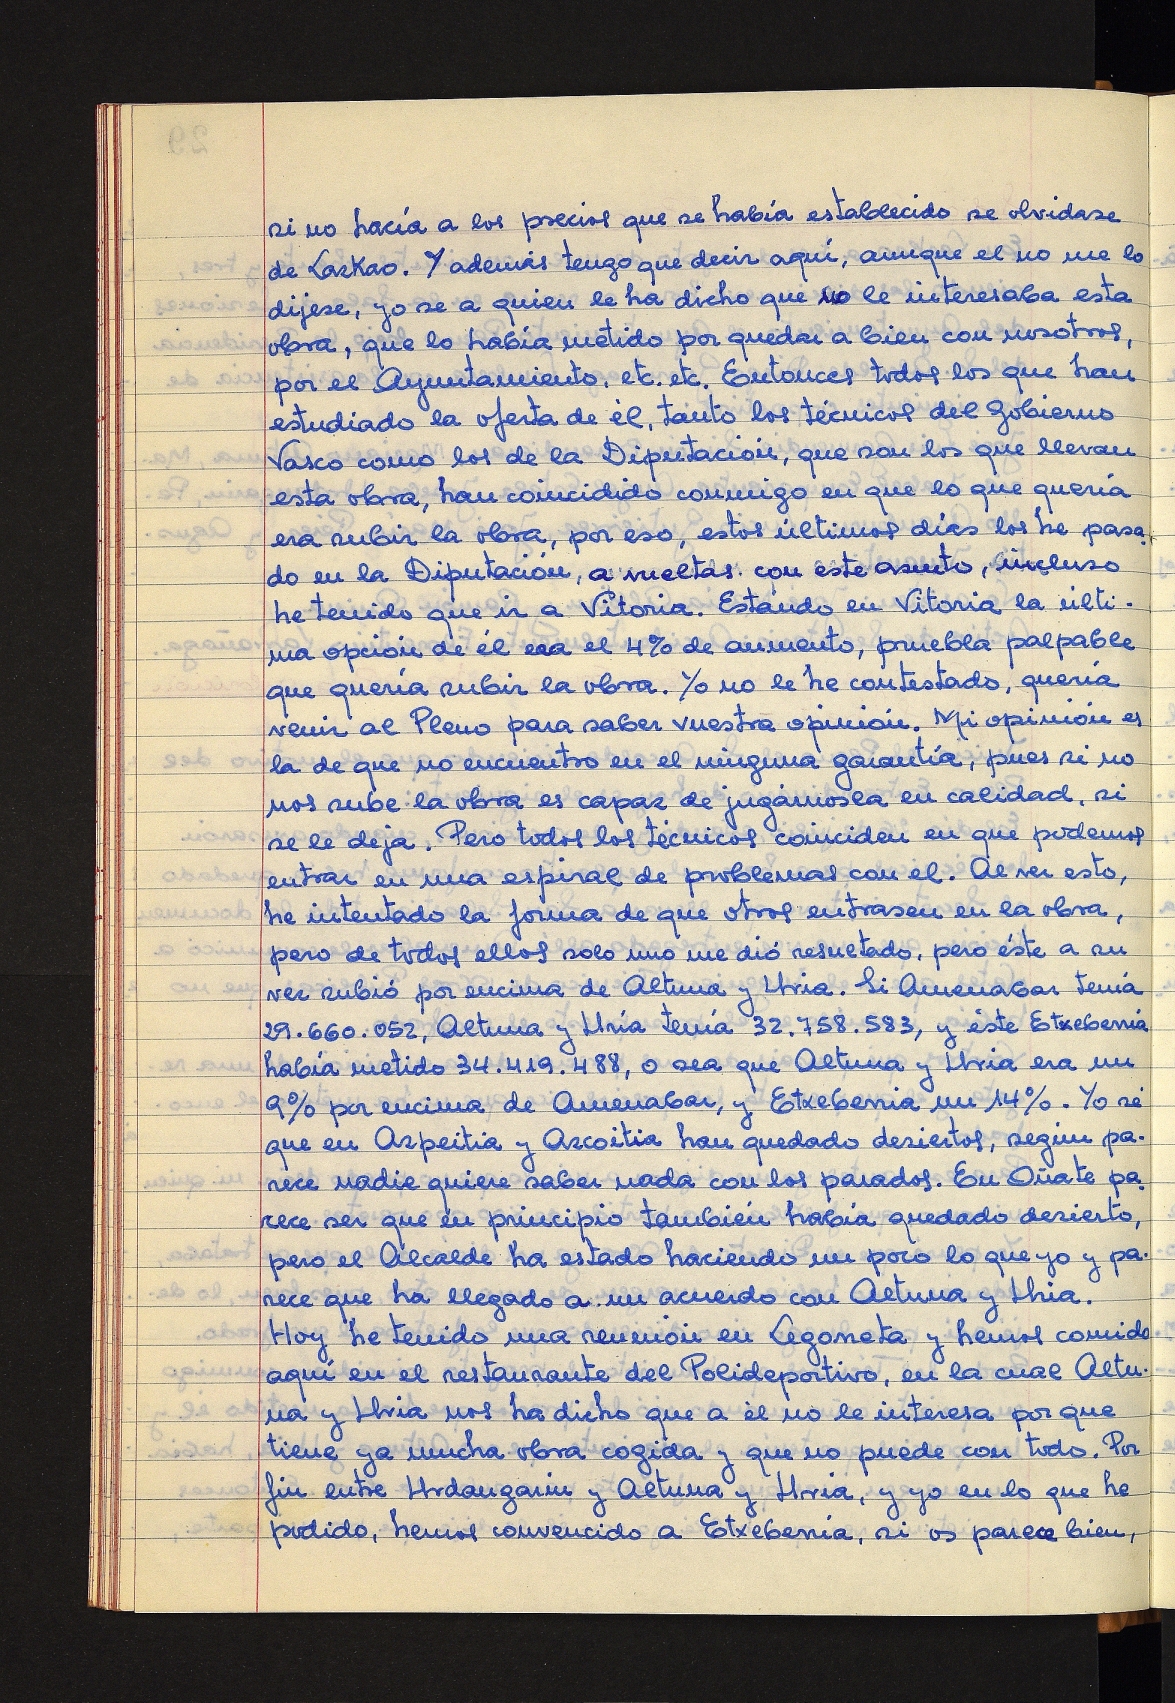 si no hacía a los precios que se había establecido se olvidase
de Lazkao. Y además tengo que decir aquí, aunque el no me lo
dijese, yo se a quien le ha dicho que no le interesaba esta
obra, que lo había metido por quedar a bien con nosotros,
por el Ayuntamiento, etc. etc. Entonces todos los que han
estudiado la oferta de él, tanto los técnicos del Gobierno
Vasco como los de la Diputación, que son los que llevan
esta obra, han coincidido conmigo en que lo que quería
era subir la obra, por eso, estos últimos días los he pasa-
do en la Diputación, a vueltas con este asunto, incluso
he tenido que ir a Vitoria. Estando en Vitoria la últi-
ma opción de él era el 4% de aumento, pruebla palpable
que quería subir la obra. Yo no le he contestado, quería
venir al Pleno para saber vuestra opinión. Mi opinión es
la de que no encuentro en el ninguna garantía, pues si no
nos sube la obra es capaz de jugárnosla en calidad, si
se le deja. Pero todos los técnicos coinciden en que podemos
entrar en una espiral de problemas con él. Al ver esto,
he intentado la forma de que otros entrasen en la obra,
pero de todos ellos solo uno me dió resultado, pero éste a su
vez subió por encima de Altuna y Uria. Si Amenabar tenía
29.660.052, Altuna y Uría tenía 32.758.583, y éste Etxeberria
había metido 34.419.488, o sea que Altuna y Uria era un
9% por encima de Amenabar, y Etxeberria un 14%. Yo sé
que en Azpeitia y Azcoitia han quedado desiertos, según pa-
rece nadie quiere saber nada con los parados. En Oñate pa-
rece ser que en principio también había quedado desierto,
pero el Alcalde ha estado haciendo un poco lo que yo y pa-
rece que ha llegado a un acuerdo con Altuna y Uria.
Hoy he tenido una reunión en Legorreta y hemos comido
aquí en el restaurante del Polideportivo, en la cual Altu-
na y Uria nos ha dicho que a él no le interesa por que
tiene ya mucha obra cogida y que no puede con todo. Por
fin entre Urdangarin y Altuna y Uria, y yo en lo que he
podido, hemos convencido a Etxeberria, si os parece bien,